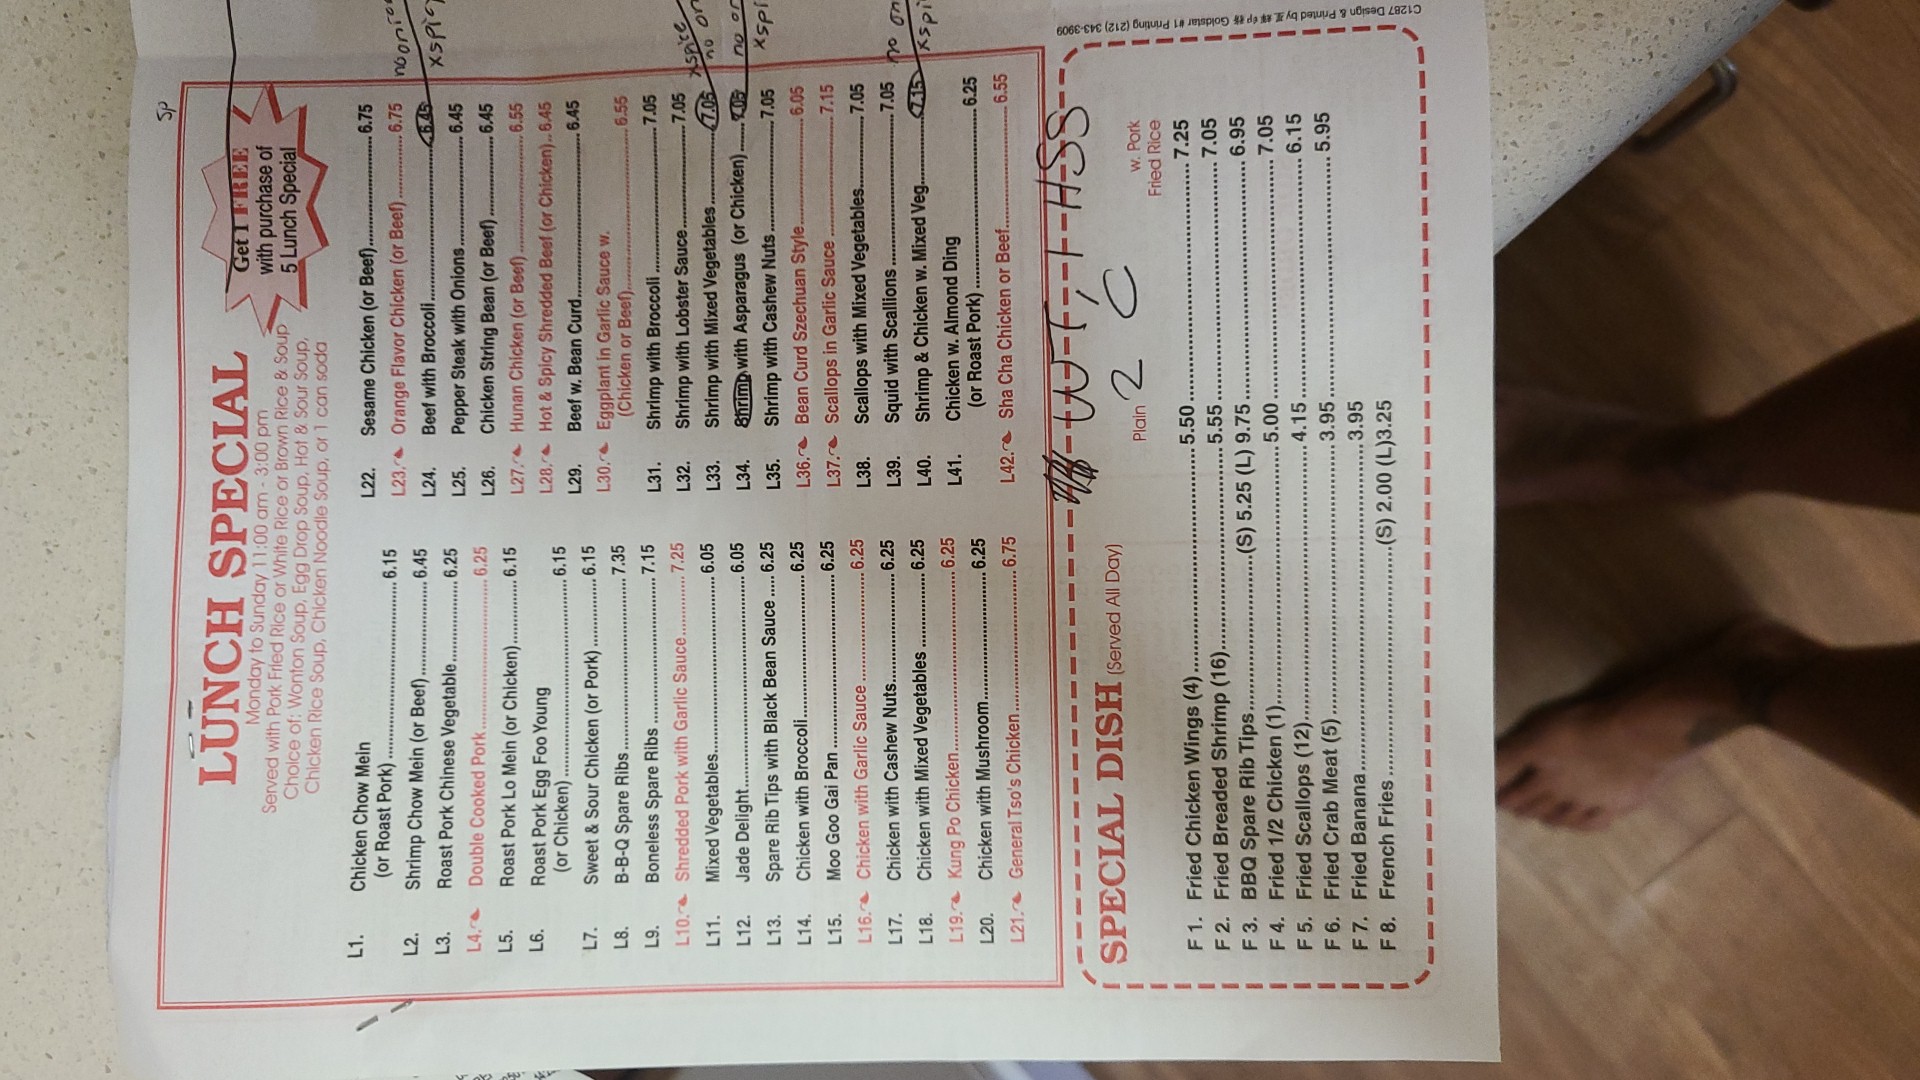 Sp
LUNCH SPECIAL
Monday to Sunday 11:00 am - 3:00 pm
Served with Pork Fried Rice or White Rice or Brown Rice & Soup
Choice of: Wonton Soup, Egg Drop Soup, Hot & Sour Soup,
Chicken Rice Soup, Chicken Noodle Soup, or 1 can soda
Get 1 FREE
with purchase of
5 Lunch Special
L1. Chicken Chow Mein
(or Roast Pork) 6.15
L2. Shrimp Chow Mein (or Beef) 6.45
L3. Roast Pork Chinese Vegetable 6.25
L4. Double Cooked Pork 6.25
L5. Roast Pork Lo Mein (or Chicken) 6.15
L6. Roast Pork Egg Foo Young
(or Chicken) 6.15
L7. Sweet & Sour Chicken (or Pork) 6.15
L8. B-B-Q Spare Ribs 7.35
L9. Boneless Spare Ribs 7.15
L10. Shredded Pork with Garlic Sauce 7.25
L11. Mixed Vegetables 6.05
L12. Jade Delight 6.05
L13. Spare Rib Tips with Black Bean Sauce 6.25
L14. Chicken with Broccoli 6.25
L15. Moo Goo Gai Pan 6.25
L16. Chicken with Garlic Sauce 6.25
L17. Chicken with Cashew Nuts 6.25
L18. Chicken with Mixed Vegetables 6.25
L19. Kung Po Chicken 6.25
L20. Chicken with Mushroom 6.25
L21. General Tso's Chicken 6.75
L22. Sesame Chicken (or Beef) 6.75
L23. Orange Flavor Chicken (or Beef) 6.75
L24. Beef with Broccoli 6.45
xspicy
L25. Pepper Steak with Onions 6.45
L26. Chicken String Bean (or Beef) 6.45
L27. Hunan Chicken (or Beef) 6.55
L28. Hot & Spicy Shredded Beef (or Chicken) 6.45
L29. Beef w. Bean Curd 6.45
L30. Eggplant in Garlic Sauce w.
(Chicken or Beef) 6.55
L31. Shrimp with Broccoli 7.05
L32. Shrimp with Lobster Sauce 7.05
xspice
L33. Shrimp with Mixed Vegetables 7.05
no on
L34. Shrimp with Asparagus (or Chicken) 7.05
no on
L35. Shrimp with Cashew Nuts 7.05
xspi
L36. Bean Curd Szechuan Style 6.05
L37. Scallops in Garlic Sauce 7.15
L38. Scallops with Mixed Vegetables 7.05
L39. Squid with Scallions 7.05
no on
L40. Shrimp & Chicken w. Mixed Veg. 7.15
xspi
L41. Chicken w. Almond Ding
(or Roast Pork) 6.25
L42. Sha Cha Chicken or Beef 6.55
WT, 1 HSS
2 C
SPECIAL DISH (Served All Day)
Plain
w. Pork
Fried Rice
F 1. Fried Chicken Wings (4) 5.50 7.25
F 2. Fried Breaded Shrimp (16) 5.55 7.05
F 3. BBQ Spare Rib Tips (S) 5.25 (L) 9.75 6.95
F 4. Fried 1/2 Chicken (1) 5.00 7.05
F 5. Fried Scallops (12) 4.15 6.15
F 6. Fried Crab Meat (5) 3.95 5.95
F 7. Fried Banana 3.95
F 8. French Fries (S) 2.00 (L)3.25
C1287 Design & Printed by Goldstar #1 Printing (212) 343-3909